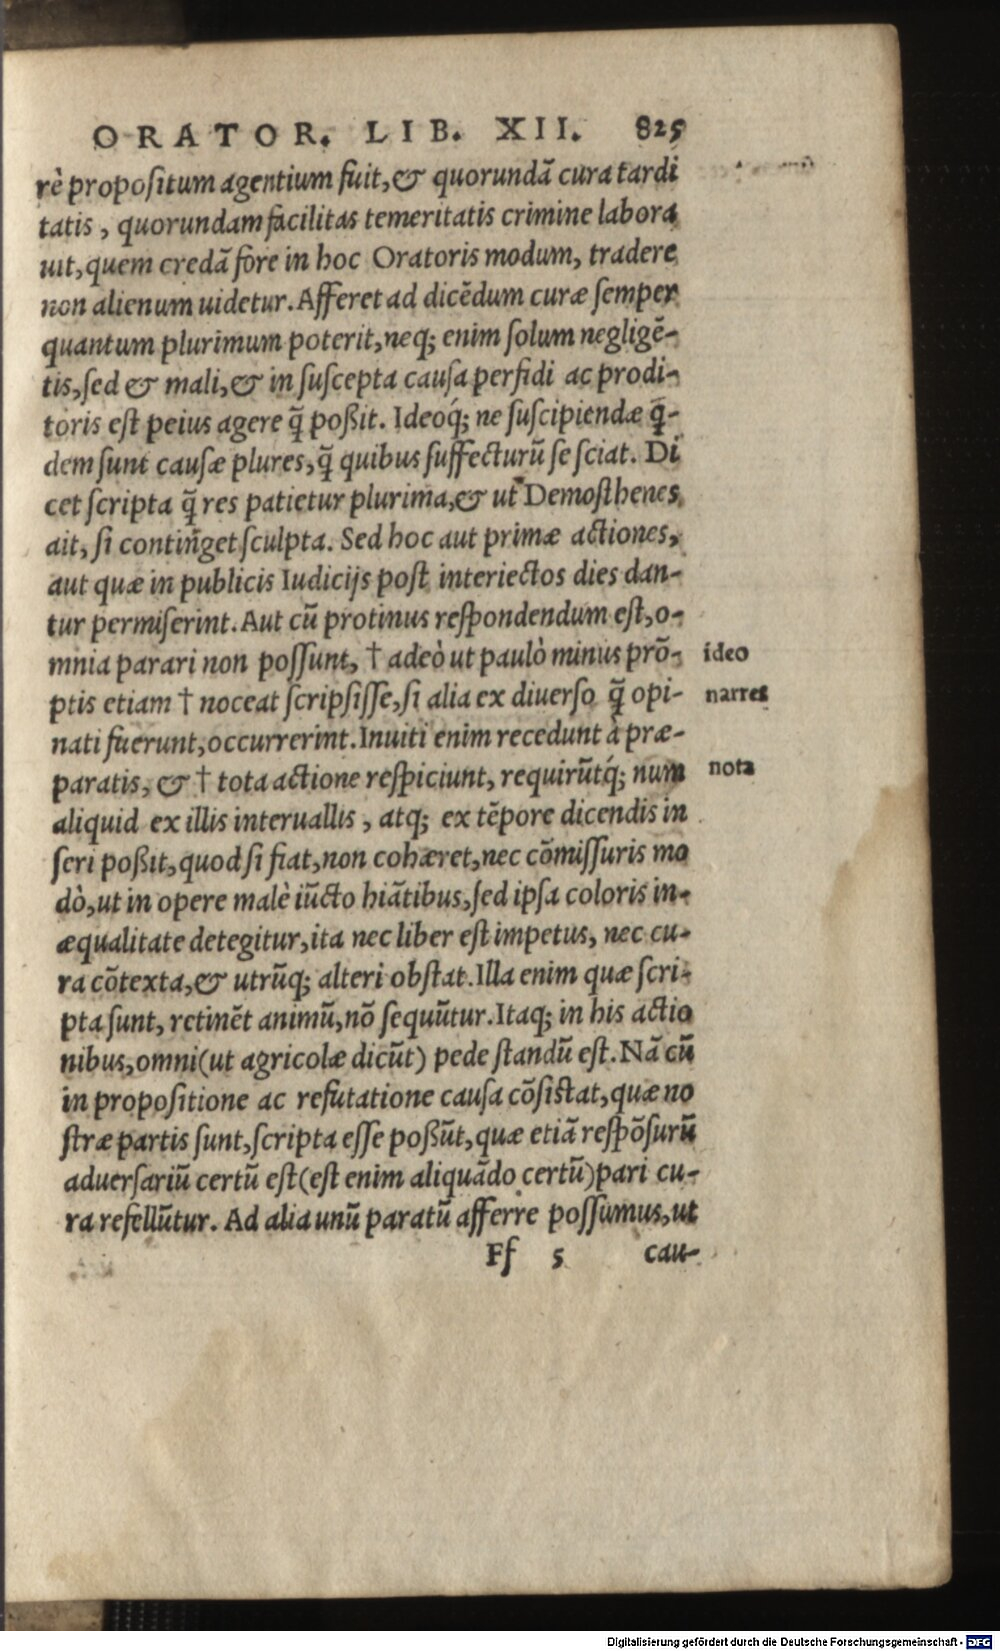 ORATOR. LIB. XII. 825
rè propositum agentium fuit,& quorundã cura tardi
tatis, quorundam facilitas temeritatis crimine labora
uit, quem credã fore in hoc Oratoris modum, tradere
non alienum uidetur. Afferet ad dicẽdum curæ semper
quantum plurimum poterit, neq; enim solum negligẽ-
tis, sed & mali, & in suscepta causa perfidi ac prodi-
toris est peius agere q̃ poßit. Ideoq́; ne suscipiendæ q̃-
dem sunt causæ plures, q̃ quibus suffecturũ se sciat. Di
cet scripta q̃ res patietur plurima, & ut Demosthenes
ait, si continget sculpta. Sed hoc aut primæ actiones,
aut quæ in publicis Iudicijs post interiectos dies dan-
tur permiserint. Aut cũ protinus respondendum est, o-
mnia parari non possunt, † adeò ut paulò minus prõ- ideo
ptis etiam † noceat scripsisse, si alia ex diuerso q̃ opi- narres
nati fuerunt, occurrerint. Inuiti enim recedunt à præ-
paratis, & † tota actione respiciunt, requirũtq́; num nota
aliquid ex illis interuallis, atq; ex tẽpore dicendis in
seri poßit, quod si fiat, non cohæret, nec cõmissuris mo
dò, ut in opere malè iũcto hiãtibus, sed ipsa coloris in-
æqualitate detegitur, ita nec liber est impetus, nec cu-
ra cõtexta, & utrũq; alteri obstat. Illa enim quæ scri-
pta sunt, retinẽt animũ, nõ sequũtur. Itaq; in his actio
nibus, omni (ut agricolæ dicũt) pede standũ est. Nã cũ
in propositione ac refutatione causa cõsistat, quæ no
stræ partis sunt, scripta esse poßũt, quæ etiã respõsurũ
aduersariũ certũ est (est enim aliquãdo certũ) pari cu-
ra refellũtur. Ad alia unũ paratũ afferre possumus, ut
Ff 5 cau-
Digitalisierung gefördert durch die Deutsche Forschungsgemeinschaft - DFG